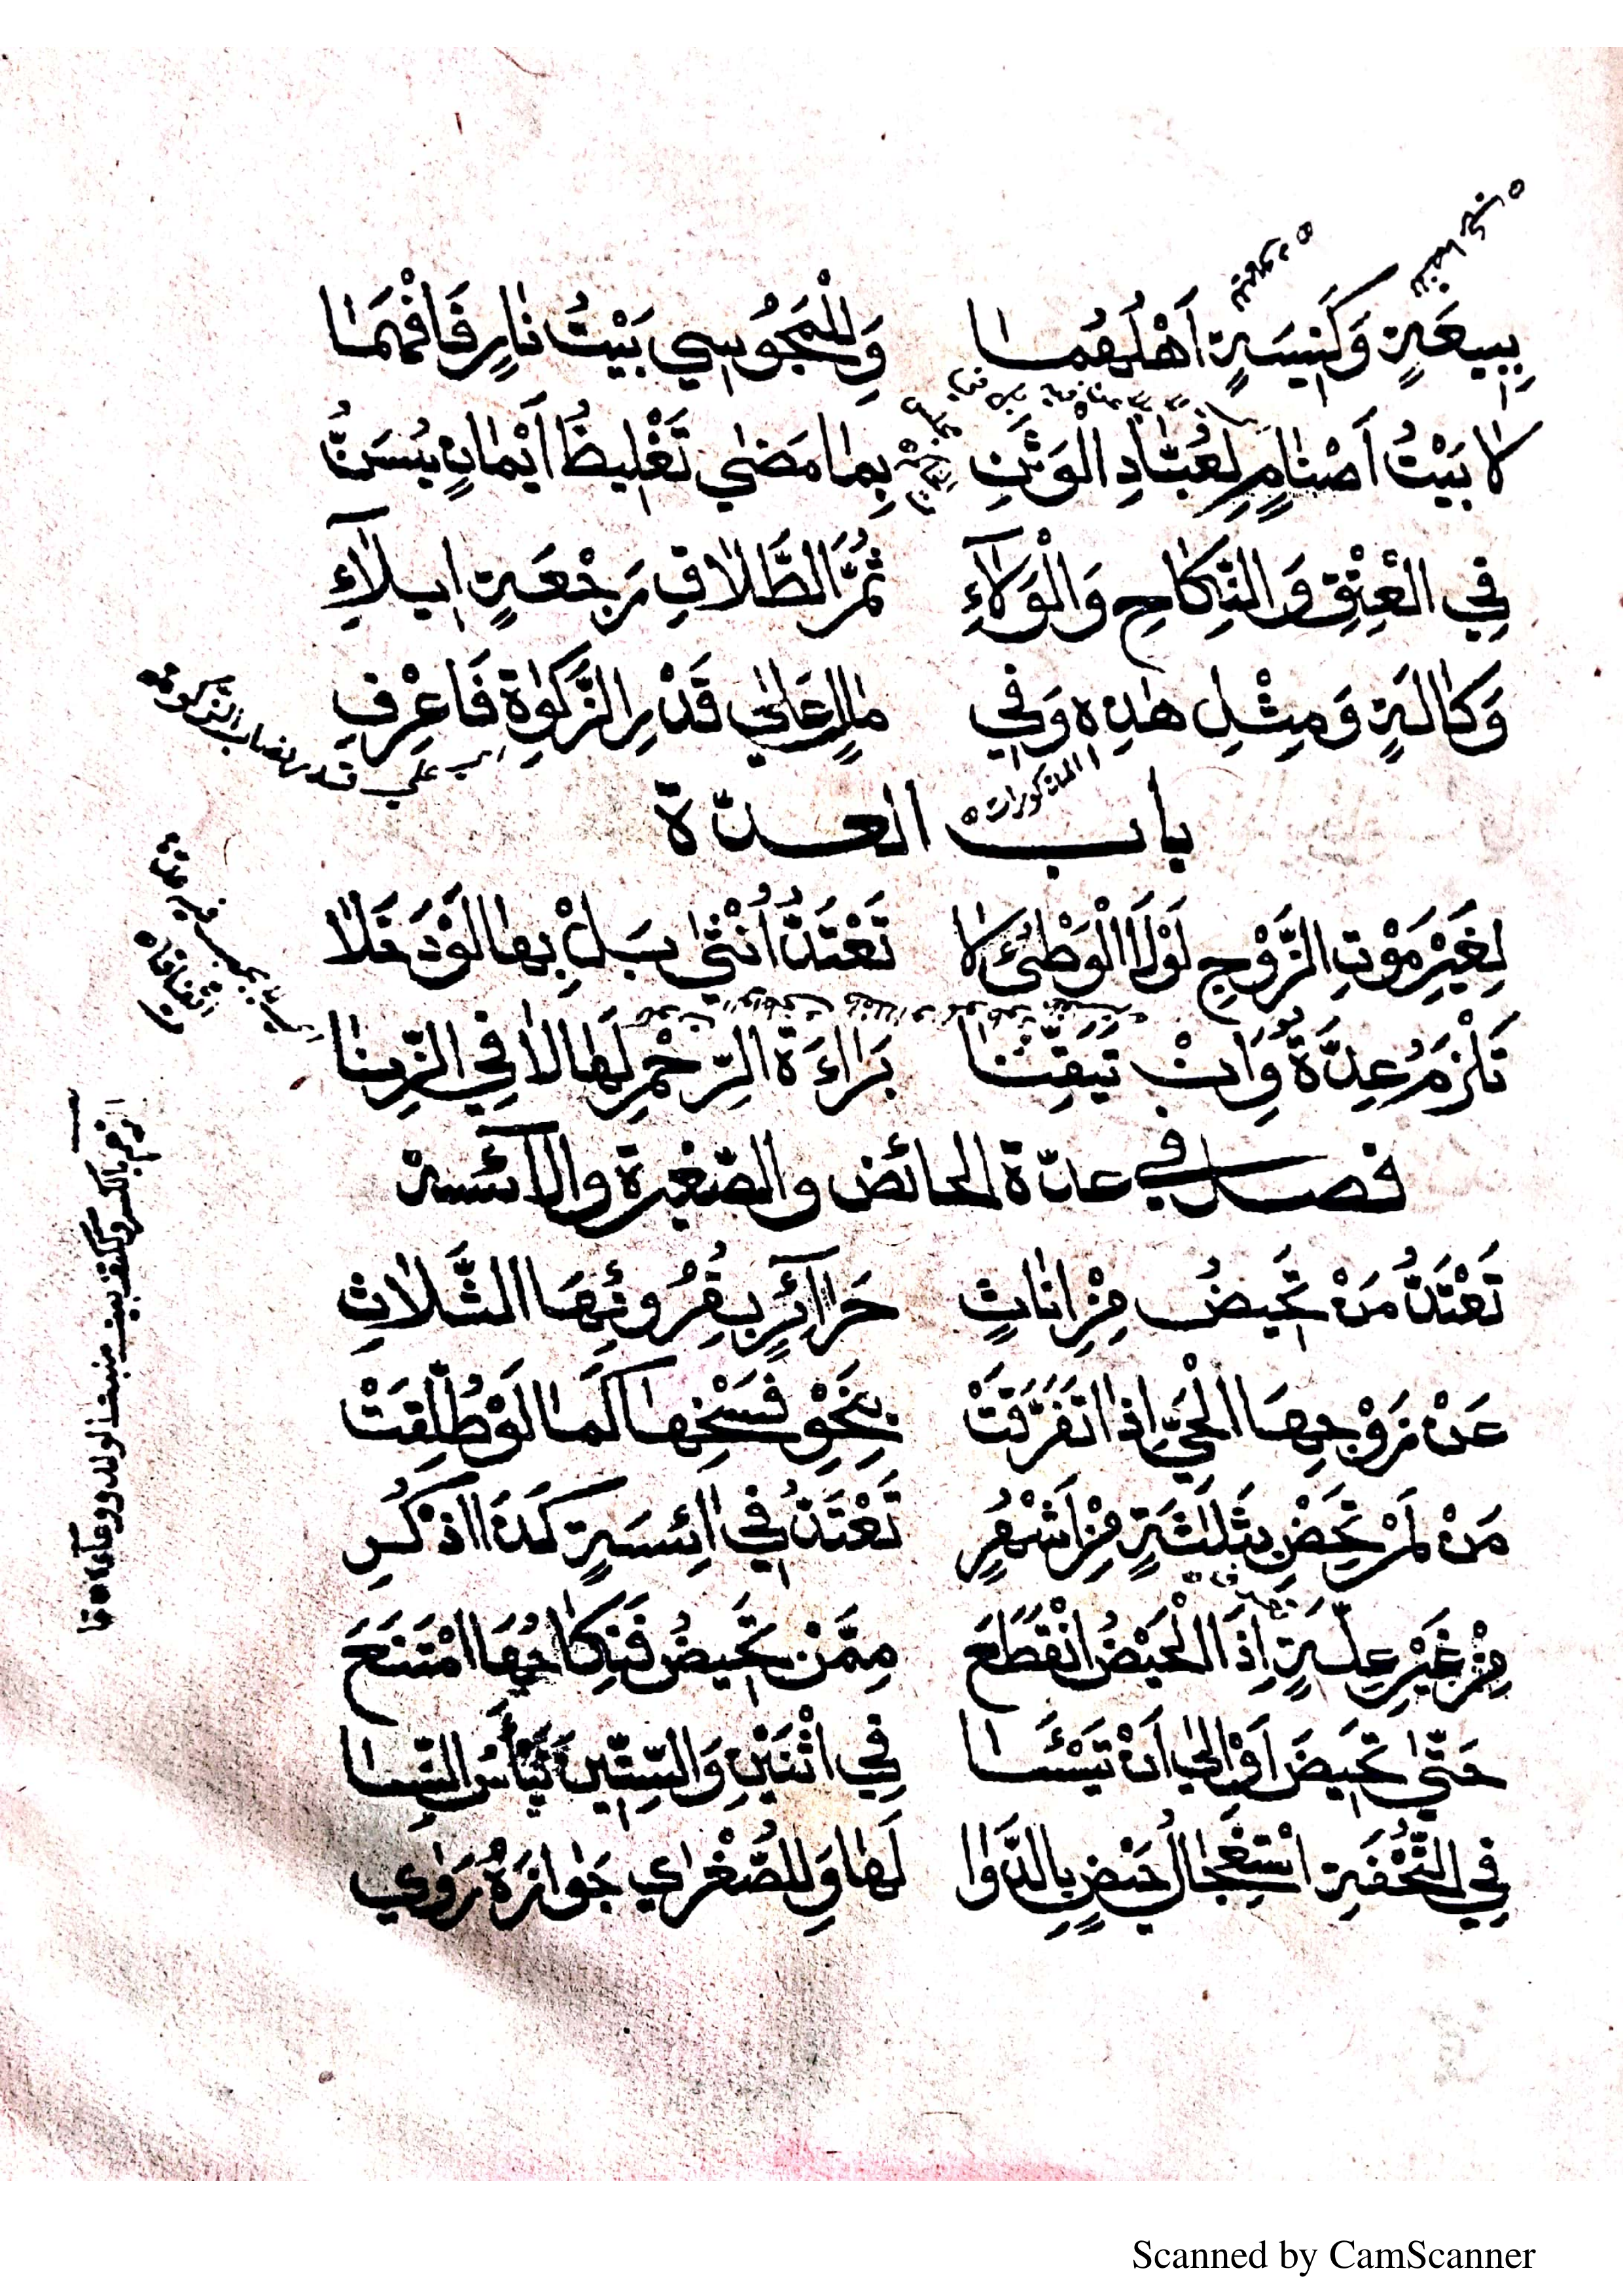 بِبِيعَةٍ وَكَنِيسَةٍ اَهْلُهُمَا وَلِلْمَجُوسِي بَيْتُ نَارٍ فَافْهَمَا
لَا بَيْتُ اَصْنَامٍ لِعُبَّادِ الْوَثَنِ بِمَا مَضٰي تَغْلِيظُ اَيْمَانٍ يُسَنُّ
فِي الْعِتْقِ وَالنِّكَاحِ وَالْوَلَآءِ ثُمَّ الطَّلَاقِ رَجْعَةٍ اِيلَآءِ
وَكَالَةٍ وَمِثْلِ هٰذِهِ وَفِي مَالٍ عَلٰي قَدْرِ الزَّكٰوةِ فَاعْرِفِ
اي علي قدر نصاب الزكوة
المذكورات
باب العدّة
لِغَيْرِ مَوْتِ الزَّوْجِ لَوْلَا الْوَطْئُ لَا تَعْتَدُّ اُنْثٰى بَلْ بِهَا لَوْ دَخَلَا
تَلْزَمُ عِدَّةٌ وَاِنْ تَيَقَّنَا بَرَاءَةَ الرِّحْمِ لَهَا لَا فِي الزِّنَا
فصل في عدّة الحائض والصّغيرة والآئسة
تَعْتَدُّ مَنْ تَحِيضُ مِنْ اِنَاثٍ حَرَآئِرٍ بِقُرُوئِهَا الثَّلَاثِ
عَنْ زَوْجِهَا الْحَيِّ اِذَا تَفَرَّقَتْ بِنَحْوِ فَسْخِهَا كَمَا لَوْ طُلِّقَتْ
مَنْ لَمْ تَحِضْ بِثَلَثَةٍ مِنْ اَشْهُرٍ تَعْتَدُّ فِي اٰئِسَةٍ كَذَا اذْكُرِ
مِنْ غَيْرِ عِلَّةٍ اِذَا الْحَيْضُ انْقَطَعَ مِمَّنْ تَحِيضُ فَنِكَاحُهَا امْتَنَعَ
حَتّٰي تَحِيضَ اَوْ اِلٰي اَنْ تَيْئَسَا فِي اثْنَيْنِ وَالسِّتِّينَ تَيْأَسُ النِّسَا
فِي التُّحْفَةِ اسْتِعْجَالُ حَيْضٍ بِالدَّوَا لَهَا وَلِلصُّغْرٰي جَوَازَهُ رَوٰي
الرحم بالكسر وككتف بيت منبت الولد ووعاؤه
Scanned by CamScanner